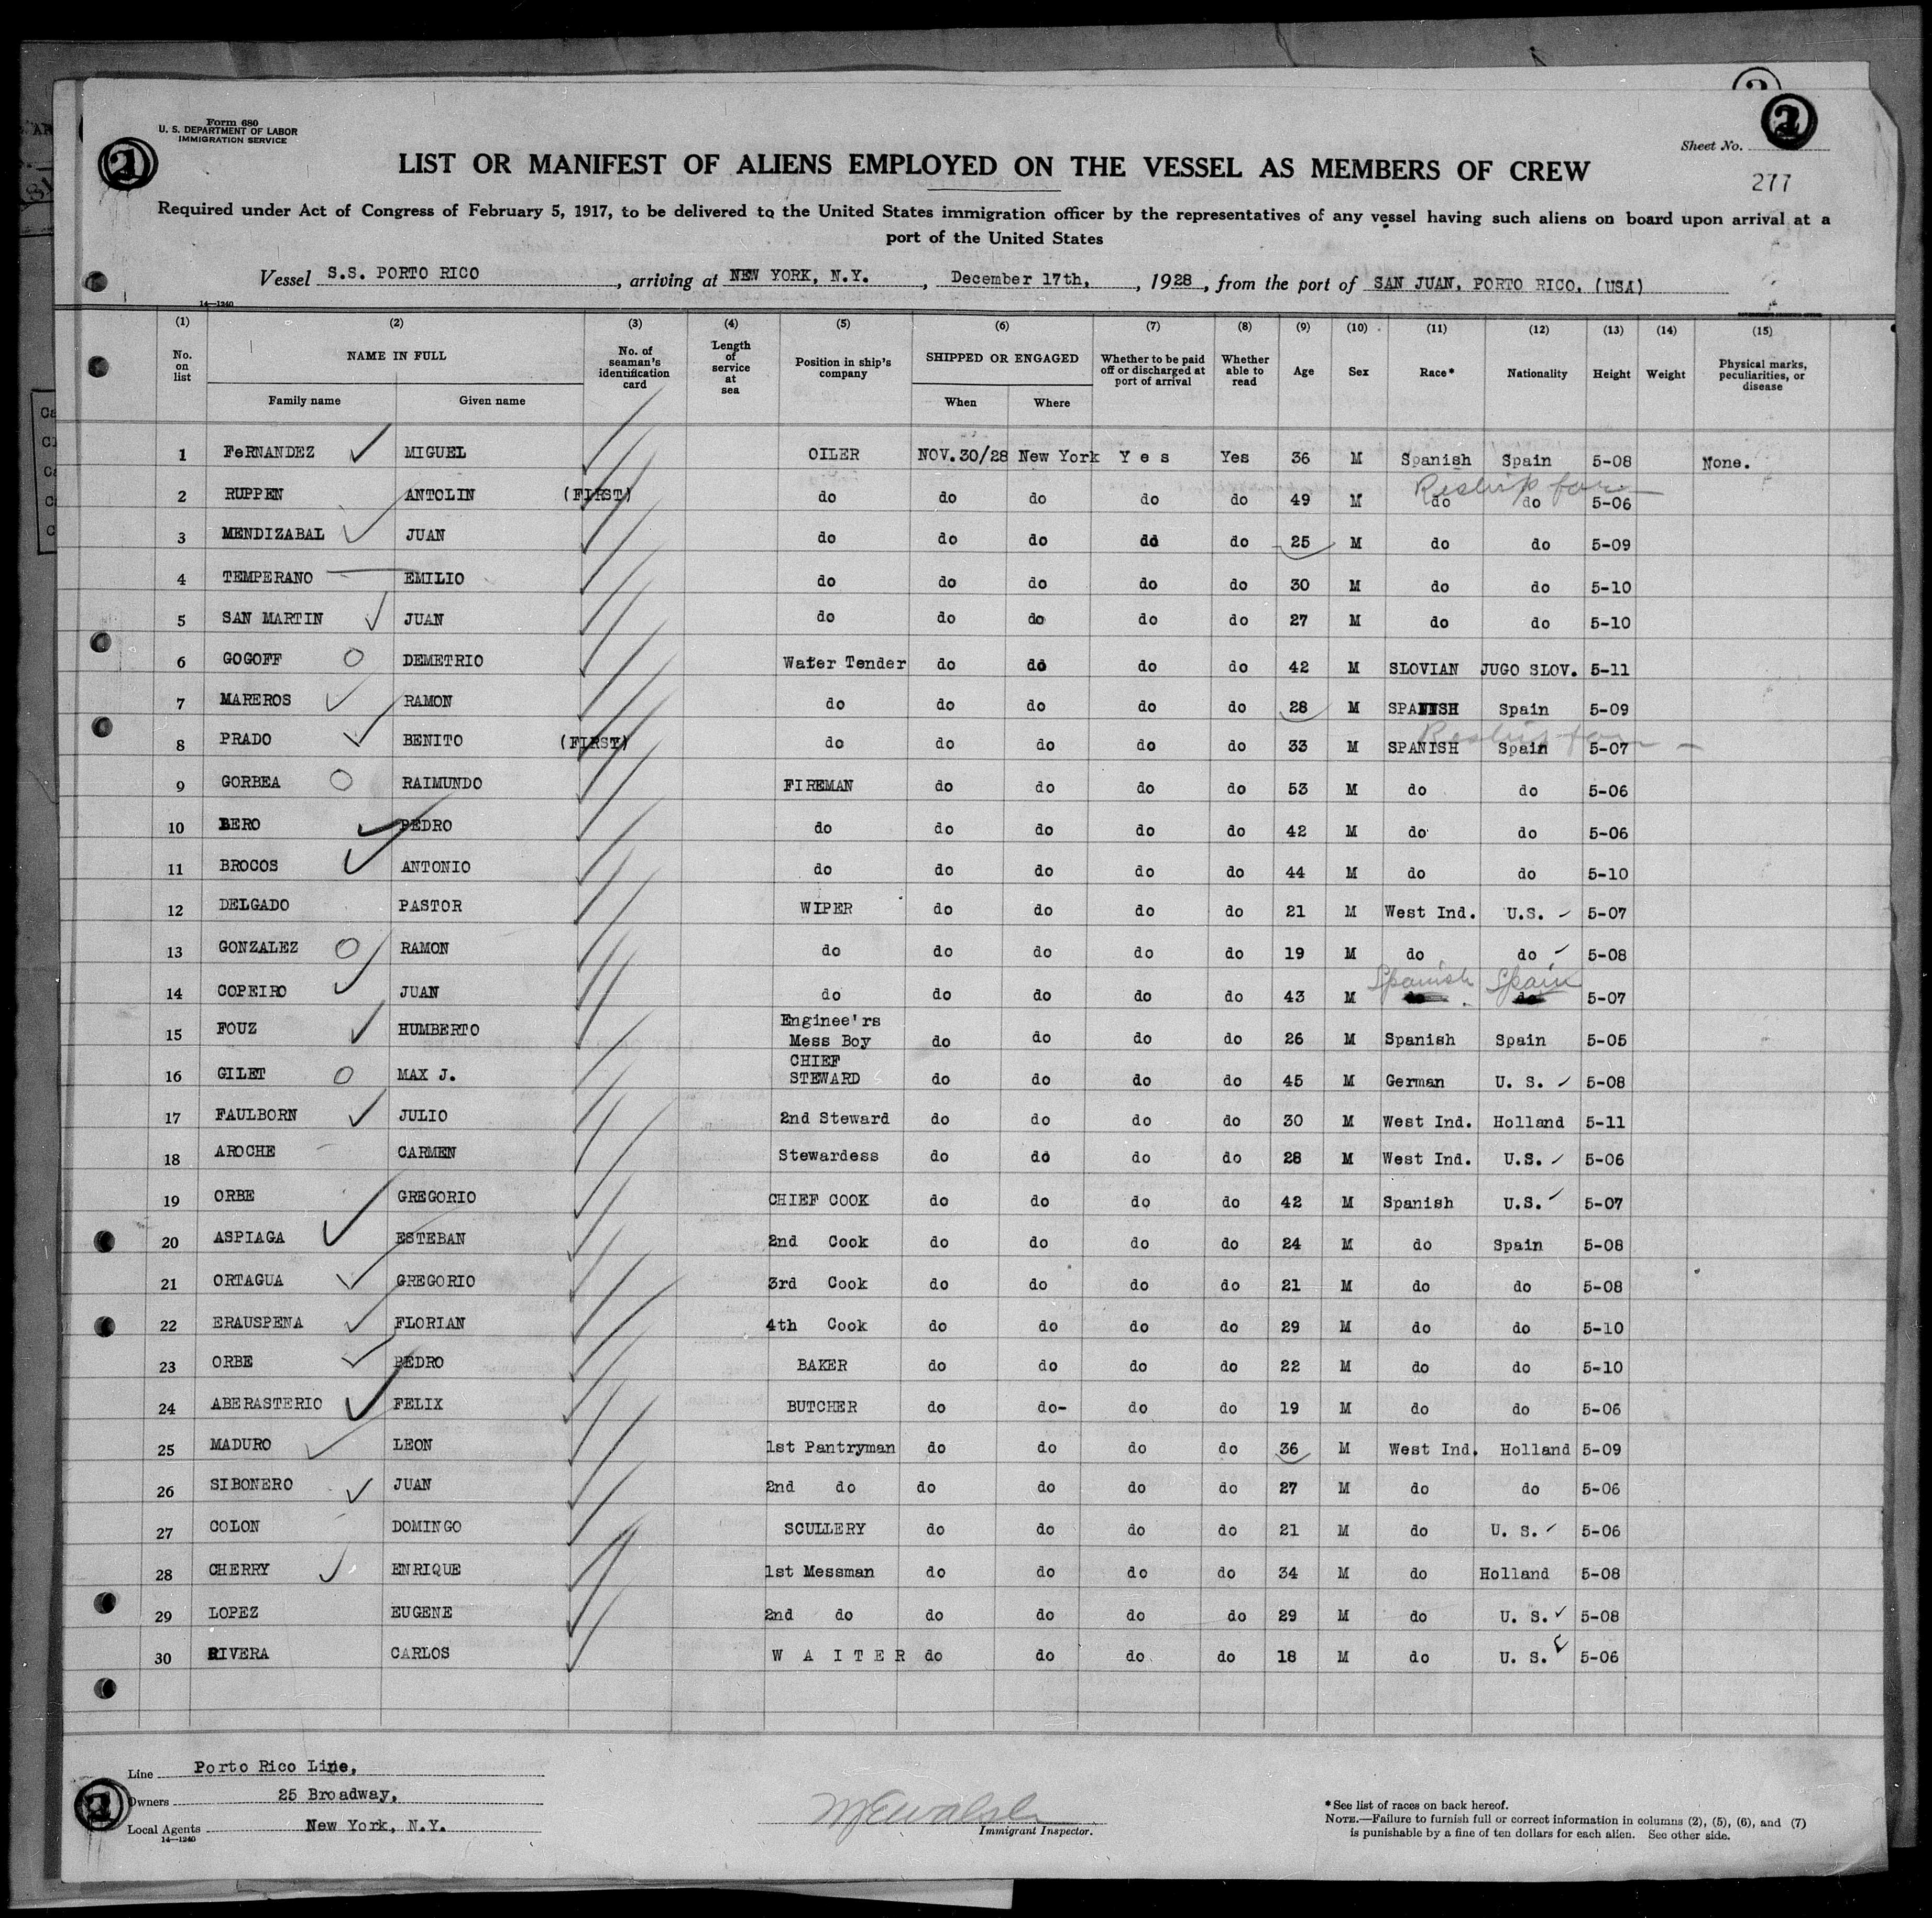 Form 680
U. S. DEPARTMENT OF LABOR
IMMIGRATION SERVICE
2
Sheet No. 2
277
LIST OR MANIFEST OF ALIENS EMPLOYED ON THE VESSEL AS MEMBERS OF CREW
Required under Act of Congress of February 5, 1917, to be delivered to the United States immigration officer by the representatives of any vessel having such aliens on board upon arrival at a
port of the United States
Vessel S.S. PORTO RICO, arriving at NEW YORK, N.Y., December 17th, , 1928, from the port of SAN JUAN, PORTO RICO. (USA)
14—1240
(1) (2) (3) (4) (5) (6) (7) (8) (9) (10) (11) (12) (13) (14) (15)
No. on list NAME IN FULL Family name Given name No. of seaman's identification card Length of service at sea Position in ship's company SHIPPED OR ENGAGED When Where Whether to be paid off or discharged at port of arrival Whether able to read Age Sex Race* Nationality Height Weight Physical marks, peculiarities, or disease
1 FeRNANDEZ MIGUEL OILER NOV.30/28 New York Yes Yes 36 M Spanish Spain 5-08 None.
2 RUPPEN ANTOLIN (FIRST) do do do do do 49 M do do 5-06
3 MENDIZABAL JUAN do do do do do 25 M do do 5-09
4 TEMPERANO EMILIO do do do do do 30 M do do 5-10
5 SAN MARTIN JUAN do do do do do 27 M do do 5-10
6 GOGOFF DEMETRIO Water Tender do do do do 42 M SLOVIAN JUGO SLOV. 5-11
7 MAREROS RAMON do do do do do 28 M SPANISH Spain 5-09
8 PRADO BENITO (FIRST) do do do do do 33 M SPANISH Spain 5-07
9 GORBEA RAIMUNDO FIREMAN do do do do 53 M do do 5-06
10 BERO PEDRO do do do do do 42 M do do 5-06
11 BROCOS ANTONIO do do do do do 44 M do do 5-10
12 DELGADO PASTOR WIPER do do do do 21 M West Ind. U.S. 5-07
13 GONZALEZ RAMON do do do do do 19 M do do 5-08
14 COPEIRO JUAN do do do do do 43 M Spanish Spain 5-07
15 FOUZ HUMBERTO Enginee'rs Mess Boy do do do do 26 M Spanish Spain 5-05
16 GILET MAX J. CHIEF STEWARD do do do do 45 M German U. S. 5-08
17 FAULBORN JULIO 2nd Steward do do do do 30 M West Ind. Holland 5-11
18 AROCHE CARMEN Stewardess do do do do 28 M West Ind. U.S. 5-06
19 ORBE GREGORIO CHIEF COOK do do do do 42 M Spanish U.S. 5-07
20 ASPIAGA ESTEBAN 2nd Cook do do do do 24 M do Spain 5-08
21 ORTAGUA GREGORIO 3rd Cook do do do do 21 M do do 5-08
22 ERAUSPENA FLORIAN 4th Cook do do do do 29 M do do 5-10
23 ORBE PEDRO BAKER do do do do 22 M do do 5-10
24 ABERASTERIO FELIX BUTCHER do do- do do 19 M do do 5-06
25 MADURO LEON 1st Pantryman do do do do 36 M West Ind. Holland 5-09
26 SIBONERO JUAN 2nd do do do do do 27 M do do 5-06
27 COLON DOMINGO SCULLERY do do do do 21 M do U. S. 5-06
28 CHERRY ENRIQUE 1st Messman do do do do 34 M do Holland 5-08
29 LOPEZ EUGENE 2nd do do do do do 29 M do U. S. 5-08
30 RIVERA CARLOS WAITER do do do do 18 M do U. S. 5-06
Line Porto Rico Line,
Owners 25 Broadway,
Local Agents New York, N.Y.
14—1240
2
Immigrant Inspector.
*See list of races on back hereof.
NOTE.—Failure to furnish full or correct information in columns (2), (5), (6), and (7)
is punishable by a fine of ten dollars for each alien. See other side.